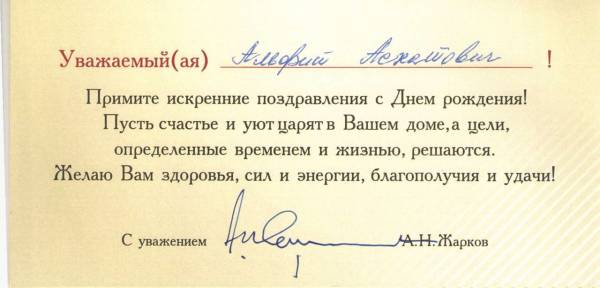 Уважаемый(ая) Альфит Асхатович !
Примите искренние поздравления с Днем рождения!
Пусть счастье и уют царят в Вашем доме, а цели,
определенные временем и жизнью, решаются.
Желаю Вам здоровья, сил и энергии, благополучия и удачи!
С уважением А.Н.Жарков